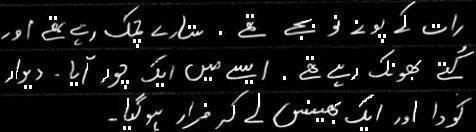 رات کے پونے نو بجے تھے ۔ ستارے چمک رہے تھے اور
کُتے بھونک رہے تھے ۔ ایسے میں ایک چور آیا ۔ دیوار
کودا اور ایک بھینس لے کر فرار ہو گیا ۔